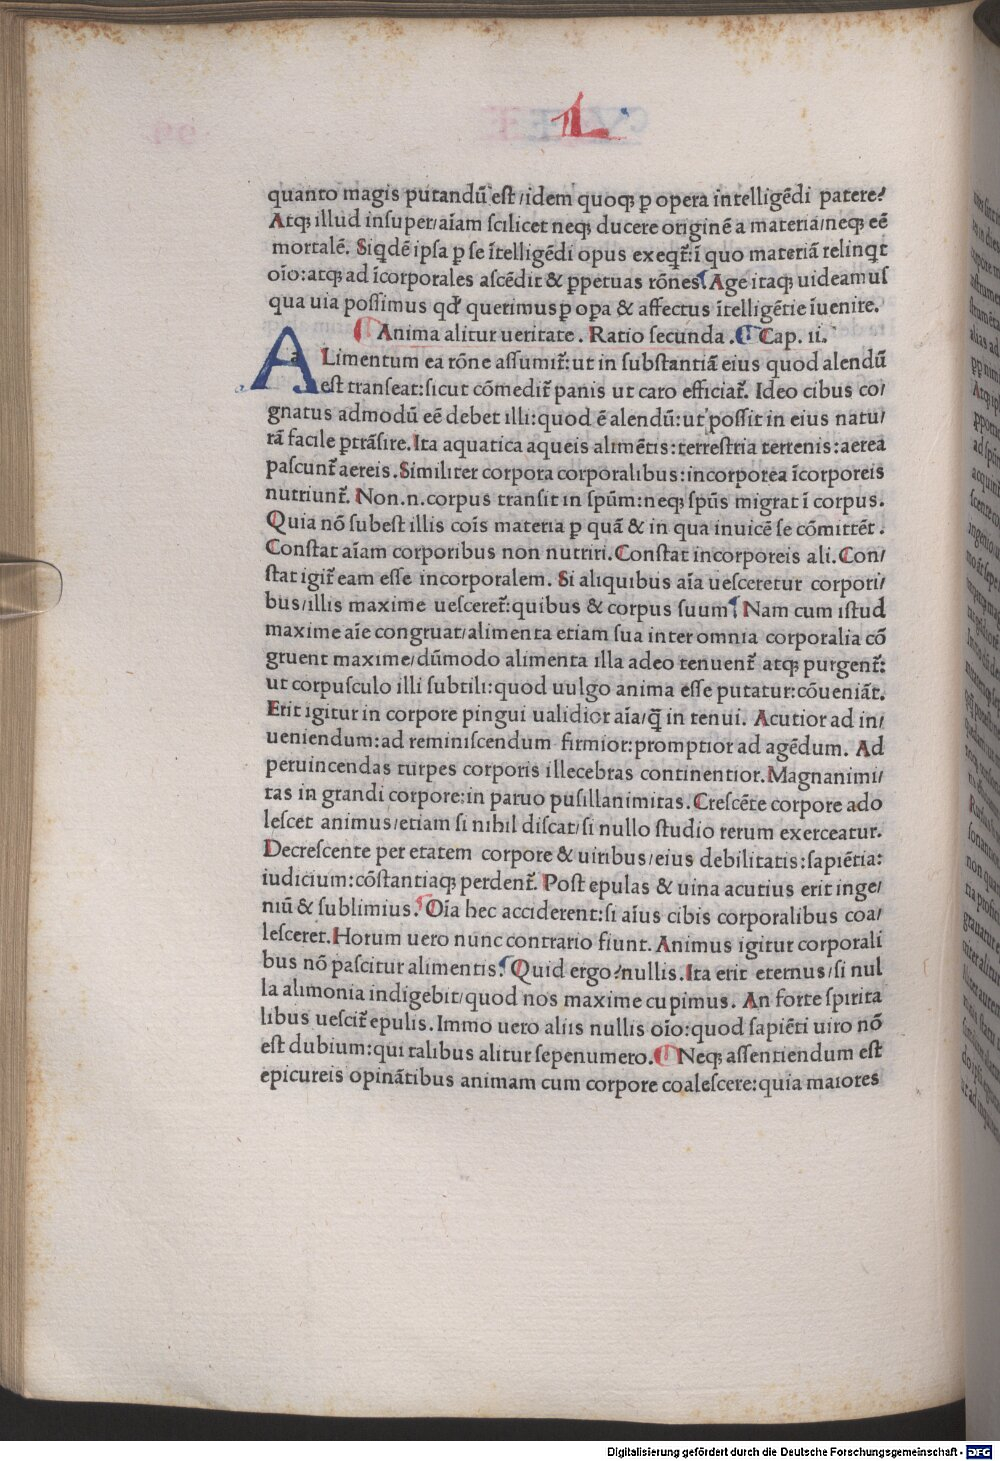 L
quanto magis putandū est/idem quoqꝫ ꝑ opera intelligēdi patere?
Atqꝫ illud insuper/aīam scilicet neqꝫ ducere originē a materia/neqꝫ eē
mortalē. Siqdē ipsa ꝑ se ītelligēdi opus exeqt̄:ī quo materiā relinqt
oīo:atqꝫ ad īcorporales ascēdit & ꝑpetuas rōnes. Age itaqꝫ uideamus
qua uia possimus qđ querimus ꝑ opa & affectus ītelligētie īuenire.
Anima alitur ueritate. Ratio secunda. Cap. ii.
A
a Limentum ea rōne assumit̄:ut in substantiā eius quod alendū
est transeat:sicut cōmedit̄ panis ut caro efficiat̄. Ideo cibus co/
gnatus admodū eē debet illi:quod ē alendū:ut possit in eius natu/
rā facile ꝑtrāsire. Ita aquatica aqueis alimētis:terrestria terrenis:aerea
pascunt̄ aereis. Similiter corpora corporalibus:incorporea īcorporeis
nutriunt̄. Non.n.corpus transit in spūm:neqꝫ spūs migrat ī corpus.
Quia nō subest illis coīs materia ꝑ quā & in qua inuicē se cōmittēt.
Constat aīam corporibus non nutriri. Constat incorporeis ali. Con/
stat igit̄ eam esse incorporalem. Si aliquibus aīa uesceretur corpori/
bus/illis maxime uesceret̄:quibus & corpus suum. Nam cum istud
maxime aīe congruat/alimenta etiam sua inter omnia corporalia cō
gruent maxime/dūmodo alimenta illa adeo tenuent̄ atqꝫ purgent̄:
ut corpusculo illi subtili:quod uulgo anima esse putatur:cōueniāt.
Erit igitur in corpore pingui ualidior aīa/q̄ in tenui. Acutior ad in/
ueniendum:ad reminiscendum firmior:promptior ad agēdum. Ad
peruincendas turpes corporis illecebras continentior. Magnanimi/
tas in grandi corpore:in paruo pusillanimitas. Crescēte corpore ado
lescet animus/etiam si nihil discat/si nullo studio rerum exerceatur.
Decrescente per etatem corpore & uiribus/eius debilitatis:sapiētia:
iudicium:cōstantiaqꝫ perdent̄. Post epulas & uina acutius erit inge/
niū & sublimius. Oīa hec acciderent:si aīus cibis corporalibus coa/
lesceret. Horum uero nunc contrario fiunt. Animus igitur corporali
bus nō pascitur alimentis. Quid ergo?nullis. Ita erit eternus/si nul
la alimonia indigebit/quod nos maxime cupimus. An forte spirita
libus uescit̄ epulis. Immo uero aliis nullis oīo:quod sapiēti uiro nō
est dubium:qui talibus alitur sepenumero. Neqꝫ assentiendum est
epicureis opinātibus animam cum corpore coalescere:quia maiores
Digitalisierung gefördert durch die Deutsche Forschungsgemeinschaft - DFG